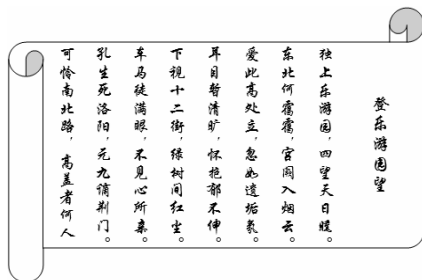 登乐游园望
独上乐游园，四望天日曛。
东北何霭霭，宫阙入烟云。
爱此高处立，忽如遗垢氛。
耳目暂清旷，怀抱郁不伸。
下视十二街，绿树间红尘。
车马徒满眼，不见心所亲。
孔生死洛阳，元九谪荆门。
可怜南北路，高盖者何人